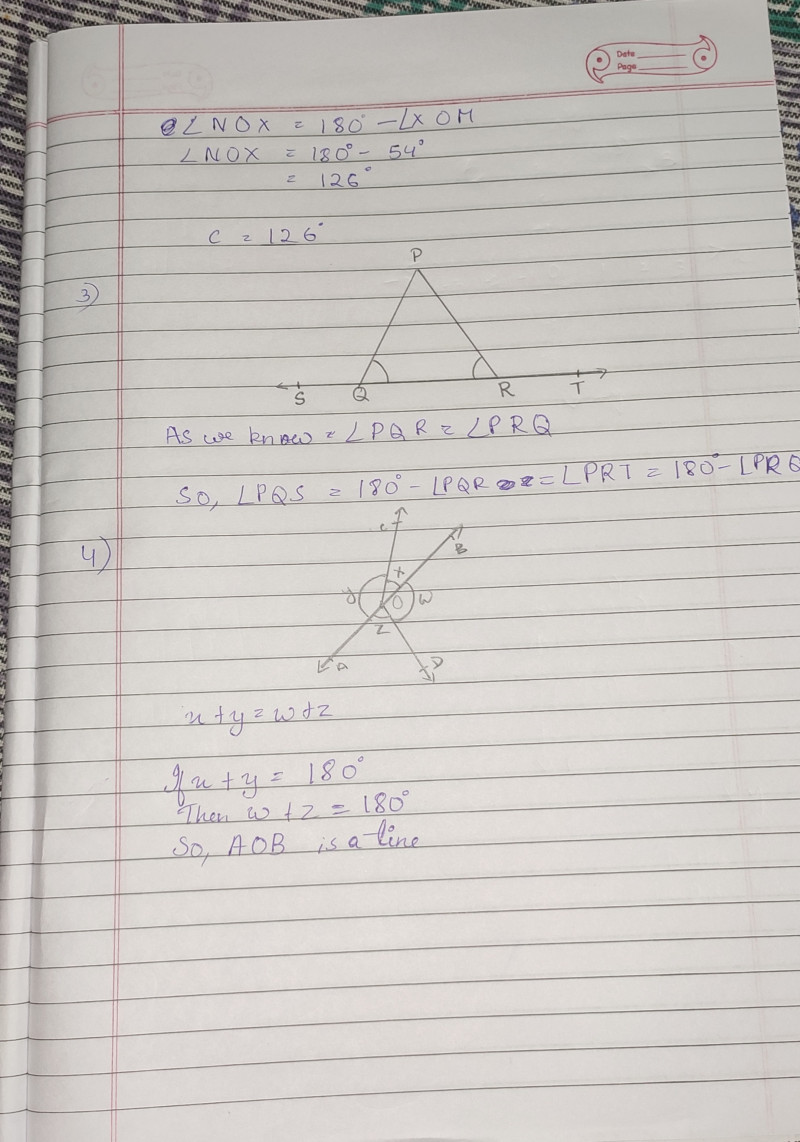 Date
Page
∠NOX = 180° - ∠XOM
∠NOX = 180° - 54°
= 126°
C = 126°
3)
P
S Q R T
As we know = ∠PQR = ∠PRQ
So, ∠PQS = 180° - ∠PQR = ∠PRT = 180° - ∠PRQ
4)
C
B
x
y O w
z
A D
x + y = w + z
If x + y = 180°
Then w + z = 180°
So, AOB is a line